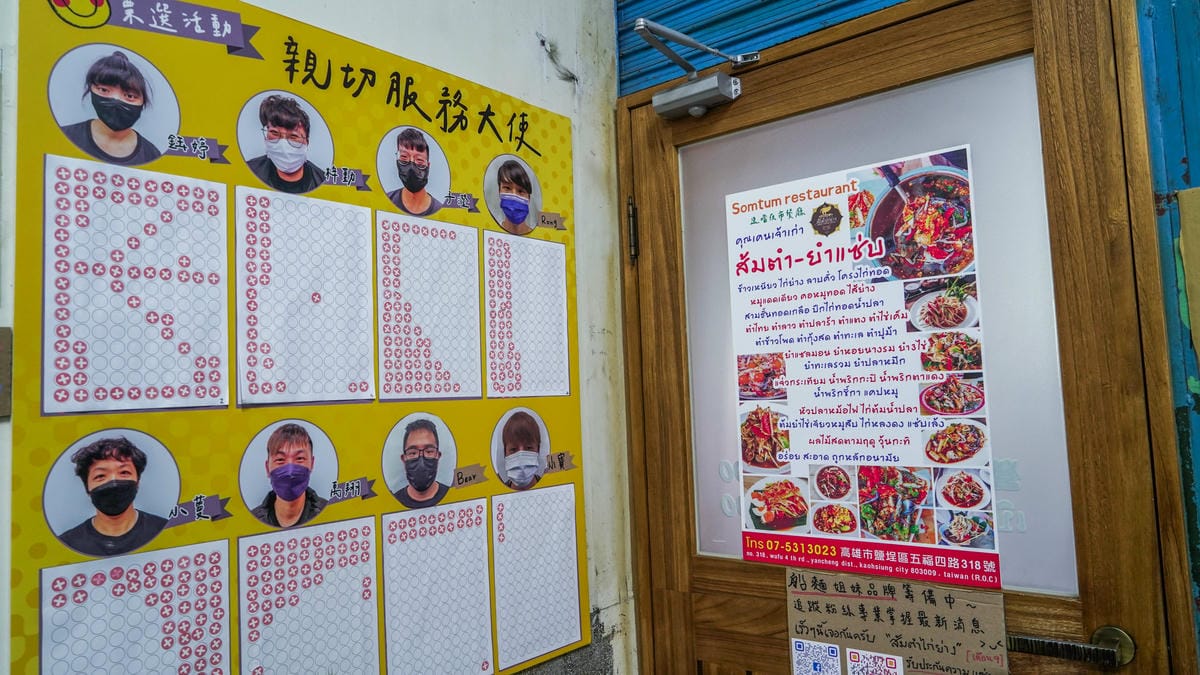 票選活動
親切服務大使
鈺婷
Rong
小蔓
禹翔
Bear
小寶
Somtum restaurant
คุณเคนเจ้าเก่า
ส้มตำ-ยำแซ่บ
ข้าวเหนียว ไก่ย่าง ลาบคั่ว โครงไก่ทอด
หมูแดดเดียว คอหมูทอด ไส้ย่าง
สามชั้นทอดเกลือ ปีกไก่ทอดน้ำปลา
ตำไทย ตำลาว ตำปลาร้า ตำแตง ตำไข่เค็ม
ตำข้าวโพด ตำกุ้งสด ตำทะเล ตำปูม้า
ยำแซลมอน ยำหอยนางรม ยำ3ไข่
ยำทะเลรวม ยำปลาหมึก
แจ่วกระเทียม น้ำพริกกะปิ น้ำพริกตาแดง
น้ำพริกขี้กา แคปหมู
หัวปลาหม้อไฟ ไก่ต้มน้ำปลา
ต้มยำไข่เจียวหมูสับ ไก่หลงดง แซ่บเล้ง
ผลไม้สดตามฤดู วุ้นกะทิ
อร่อย สะอาด ถูกหลักอนามัย
โทร 07-5313023 高雄市鹽埕區五福四路318號
no. 318, wufu 4 th rd., yancheng dist., kaohsiung city 803009, taiwan (R.O.C)
船麵姐妹品牌籌備中~
追蹤粉絲專業掌握最新消息
เร็วๆนี้เจอกันครับ "ส้มตำไก่ย่าง"
[เดือน9]